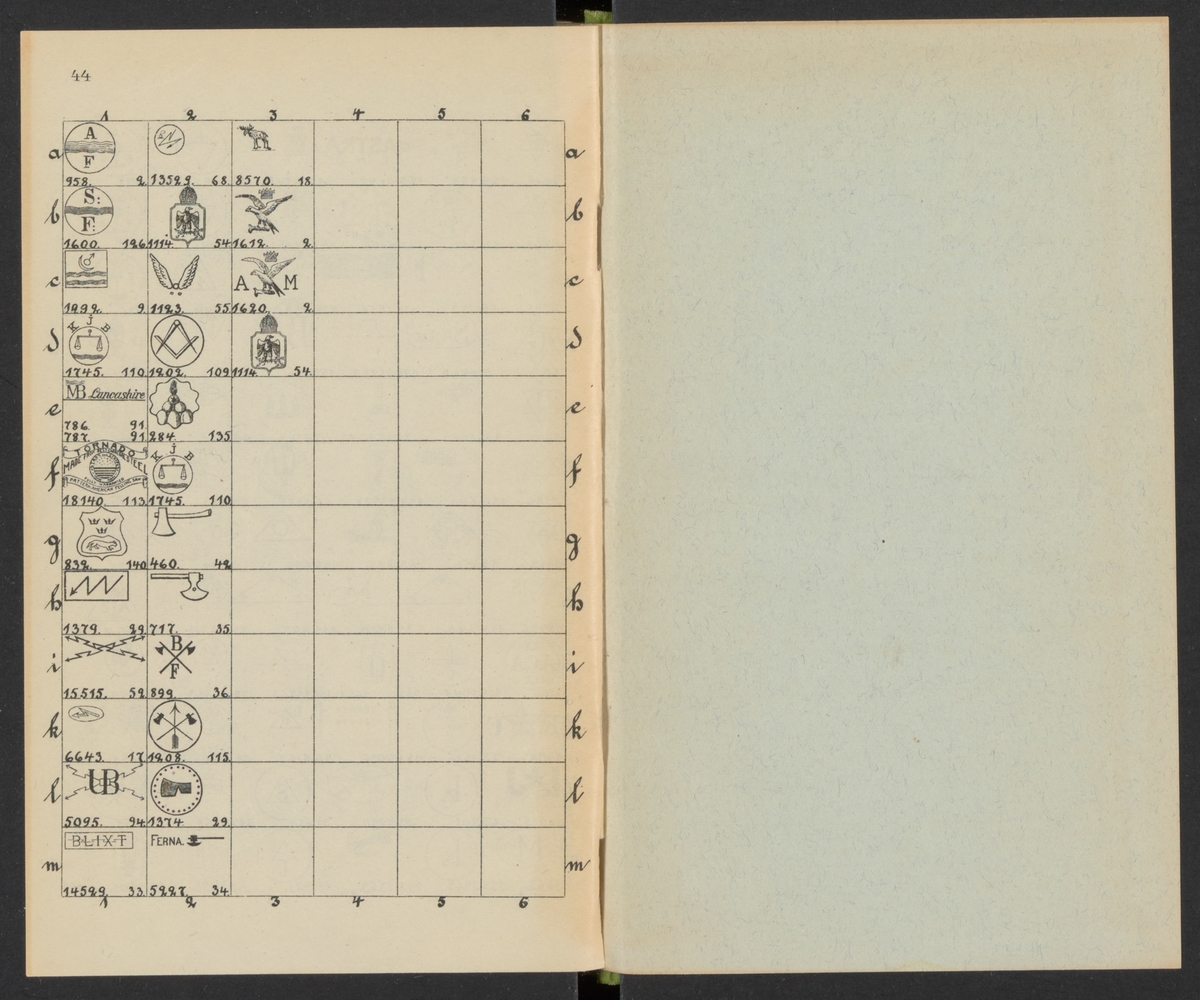 44
1 2 3 4 5 6
a A F a
958. 2. 13529. 68. 8570. 18.
b S: F: b
1600. 126. 1114. 54. 1612. 2.
c A M c
1292. 9. 1123. 55. 1620. 2.
d K J B d
1745. 110. 1202. 109. 1114. 54.
e MB Lancashire e
786. 91.
787. 91. 284. 135.
f TORNADO K J B f
MADE FROM STEEL
18140. 113. 1745. 110.
g g
832. 140. 460. 42.
h h
1379. 29. 717. 35.
i B F i
15515. 52. 899. 36.
k k
6643. 17. 1208. 115.
l UB l
5095. 94. 1374 29.
m BLIXT FERNA. m
14529. 33. 5227. 34.
1 2 3 4 5 6